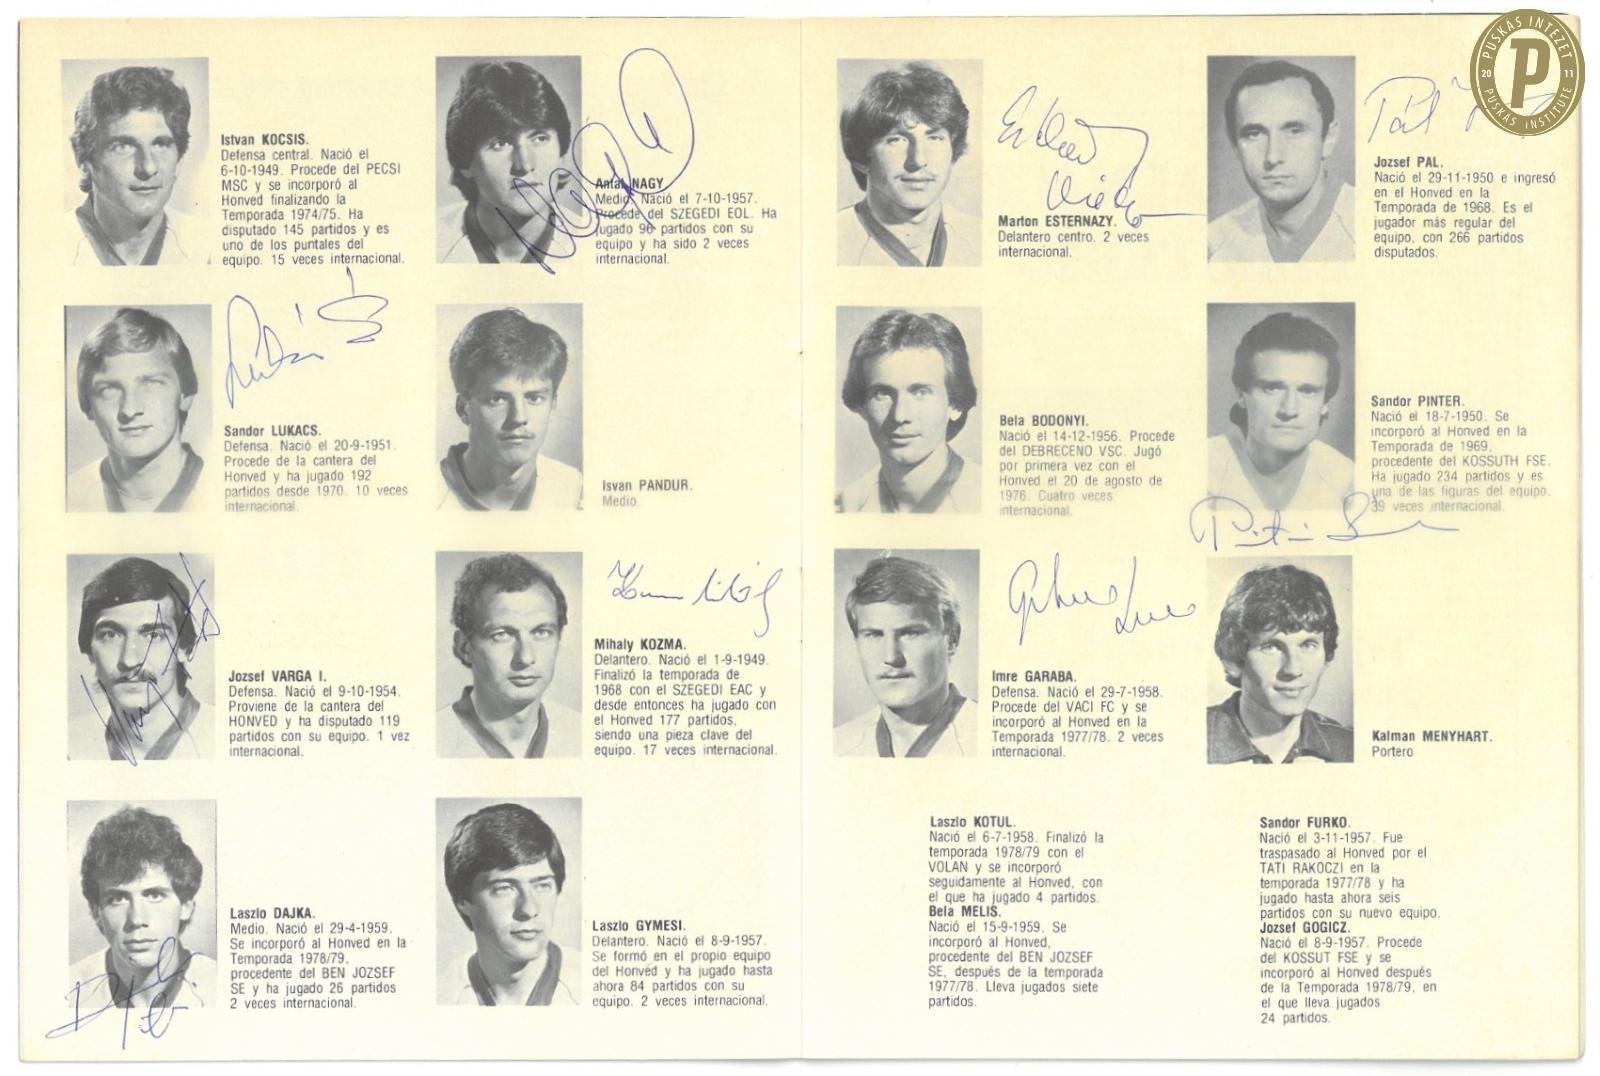 Istvan KOCSIS.
Defensa central. Nació el
6-10-1949. Procede del PECSI
MSC y se incorporó al
Honved finalizando la
Temporada 1974/75. Ha
disputado 145 partidos y es
uno de los puntales del
equipo. 15 veces internacional.
Antal NAGY
Medio. Nació el 7-10-1957.
Procede del SZEGEDI EOL. Ha
jugado 96 partidos con su
equipo y ha sido 2 veces
internacional.
Sandor LUKACS.
Defensa. Nació el 20-9-1951.
Procede de la cantera del
Honved y ha jugado 192
partidos desde 1970. 10 veces
internacional.
Isvan PANDUR.
Medio.
Jozsef VARGA I.
Defensa. Nació el 9-10-1954.
Proviene de la cantera del
HONVED y ha disputado 119
partidos con su equipo. 1 vez
internacional.
Mihaly KOZMA.
Delantero. Nació el 1-9-1949.
Finalizó la temporada de
1968 con el SZEGEDI EAC y
desde entonces ha jugado con
el Honved 177 partidos,
siendo una pieza clave del
equipo. 17 veces internacional.
Laszlo DAJKA.
Medio. Nació el 29-4-1959.
Se incorporó al Honved en la
Temporada 1978/79,
procedente del BEN JOZSEF
SE y ha jugado 26 partidos
2 veces internacional.
Laszlo GYMESI.
Delantero. Nació el 8-9-1957.
Se formó en el propio equipo
del Honved y ha jugado hasta
ahora 84 partidos con su
equipo. 2 veces internacional.
Marton ESTERNAZY.
Delantero centro. 2 veces
internacional.
Pál
Jozsef PAL.
Nació el 29-11-1950 e ingresó
en el Honved en la
Temporada de 1968. Es el
jugador más regular del
equipo, con 266 partidos
disputados.
Bela BODONYI.
Nació el 14-12-1956. Procede
del DEBRECENO VSC. Jugó
por primera vez con el
Honved el 20 de agosto de
1976. Cuatro veces
internacional.
Sandor PINTER.
Nació el 18-7-1950. Se
incorporó al Honved en la
Temporada de 1969,
procedente del KOSSUTH FSE.
Ha jugado 234 partidos y es
una de las figuras del equipo.
39 veces internacional.
Imre GARABA.
Defensa. Nació el 29-7-1958.
Procede del VACI FC y se
incorporó al Honved en la
Temporada 1977/78. 2 veces
internacional.
Kalman MENYHART.
Portero
Laszlo KOTUL.
Nació el 6-7-1958. Finalizó la
temporada 1978/79 con el
VOLAN y se incorporó
seguidamente al Honved, con
el que ha jugado 4 partidos.
Bela MELIS.
Nació el 15-9-1959. Se
incorporó al Honved,
procedente del BEN JOZSEF
SE, después de la temporada
1977/78. Lleva jugados siete
partidos.
Sandor FURKO.
Nació el 3-11-1957. Fue
traspasado al Honved por el
TATI RAKOCZI en la
temporada 1977/78 y ha
jugado hasta ahora seis
partidos con su nuevo equipo.
Jozsef GOGICZ.
Nació el 8-9-1957. Procede
del KOSSUT FSE y se
incorporó al Honved después
de la Temporada 1978/79, en
el que lleva jugados
24 partidos.
PUSKÁS INTÉZET
20 P 11
PUSKÁS INSTITUTE